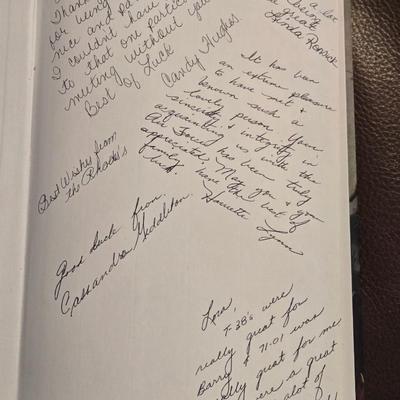 Thank
for being
nice and pa
I couldn't have
to that on partic
meeting without you
Best of Luck
Candy Hughes.
a lot
great
Linda
It has been
an extreme pleasure
to have met &
known such a
lovely person. Your
sincerity & integrity in
acquainting us with the
Air Force has been truly
appreciated. May you & your
family have the best of
luck.
Harriette Lynn
Best Wishes from
the Rhodes's
Good luck from
Cassandra Middleton.
Lora,
T-38's were
really great for
Barry & 71-01 was
really great for me
were a great
alot of